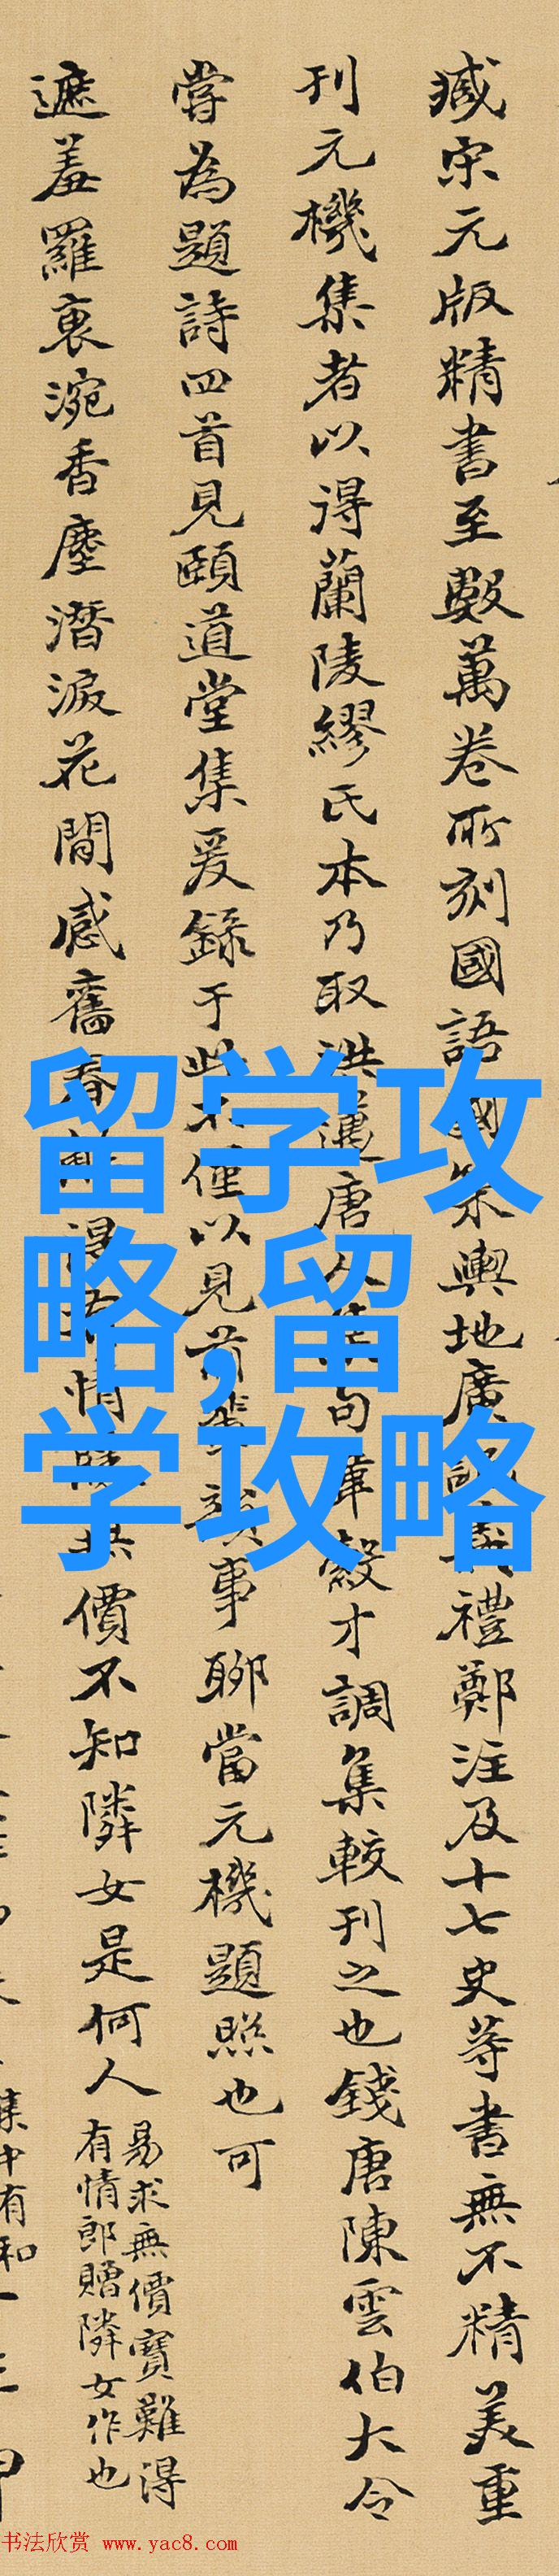 臧宋元版精書至數萬卷所刻國語國策輿地廣記義禮鄭注及十七史等書無不精美重
刊元機集者以得蘭陵繆氏本乃取洪邁唐人集句韋縠才調集較刊之也錢唐陳雲伯大令
嘗為題詩四首見頤道堂集爰錄于此不僅以見前輩韻事聊當元機題照也可
遮羞羅裹涴香塵潛淚花間感舊春解得有情難無價不知隣女是何人
易求無價寶難得
有情郎贈隣女作也
集中有和
留学攻
略,留
学攻略
书法欣赏 www.yac8.com